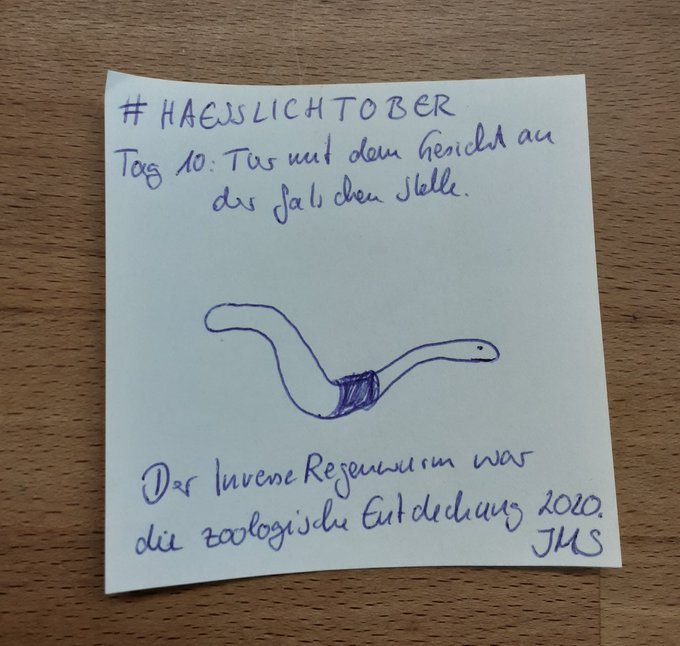 #HAESSLICHTOBER
Tag 10: Tier mit dem Gesicht an
der falschen Stelle.
Der Inverse Regenwurm war
die zoologische Entdeckung 2020.
JMS